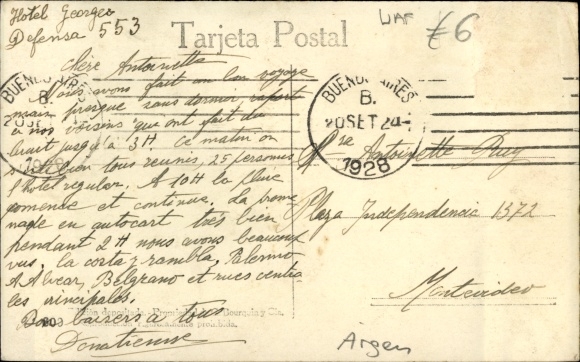 Hotel Georges
Defensa 553
UAF
£6
Tarjeta Postal
Chère Antoinette
Nous avons fait un bon voyage
mais presque sans dormir
a nos voisins que ont fait du
bruit jusqu'à 3H ce matin on
bien tous reunis, 25 personnes
l'hotel regular. A 10H la
comence et continue. La prome
nade en autocart très bien
pendant 2H nous avons beaucoup
vus, la costa y rambla, Palermo
A Alvear, Belgrano et rues centra
les principales.
Bons baisers à tous
Donatienne
BUENOS AIRES
B.
20 SET 24
1928
BUENOS AIRES
B.
1928
Antoinette Puig
Plaza Independencia 1372
Montevideo
Argen